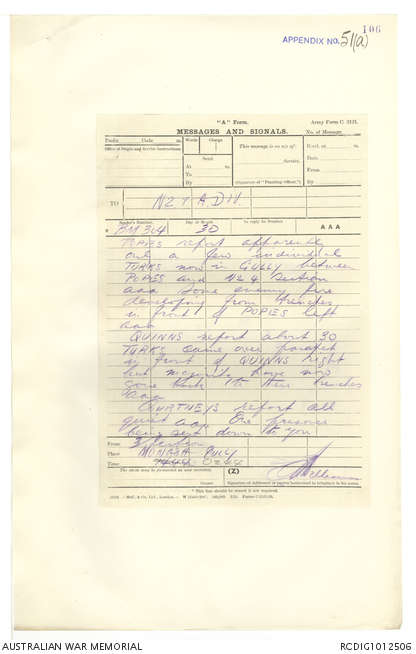 106
APPENDIX NO. 51(a)
"A" Form.
Army Form C. 2121.
MESSAGES AND SIGNALS.
No. of Message
Prefix Code m.
Words Charge
This message is on a/c of:
Recd. at m.
Office of Origin and Service Instructions.
Sent
Date
At m.
Service.
From
To
By
(Signature of "Franking Officer.")
By
TO
NZ & A DIV.
Sender's Number.
Day of Month.
In reply to Number
AAA
BM 304
30
POPES report apparently
only a few individual
TURKS now in GULLY between
POPES and No 4 Section
aaa Some enemy fire
developing from trenches
in front of POPES left
aaa
QUINNS report about 30
TURKS came over parapet
in front of QUINNS right
but majority have now
gone back to their trenches
aaa
COURTNEYS report all
quiet aaa One prisoner
being sent down to you
From
3 Section
Place
MONASH GULLY
Time
The above may be forwarded as now corrected.
(Z)
Censor.
Signature of Addressor or person authorised to telegraph in his name.
* This line should be erased if not required.
AUSTRALIAN WAR MEMORIAL
RCDIG1012506